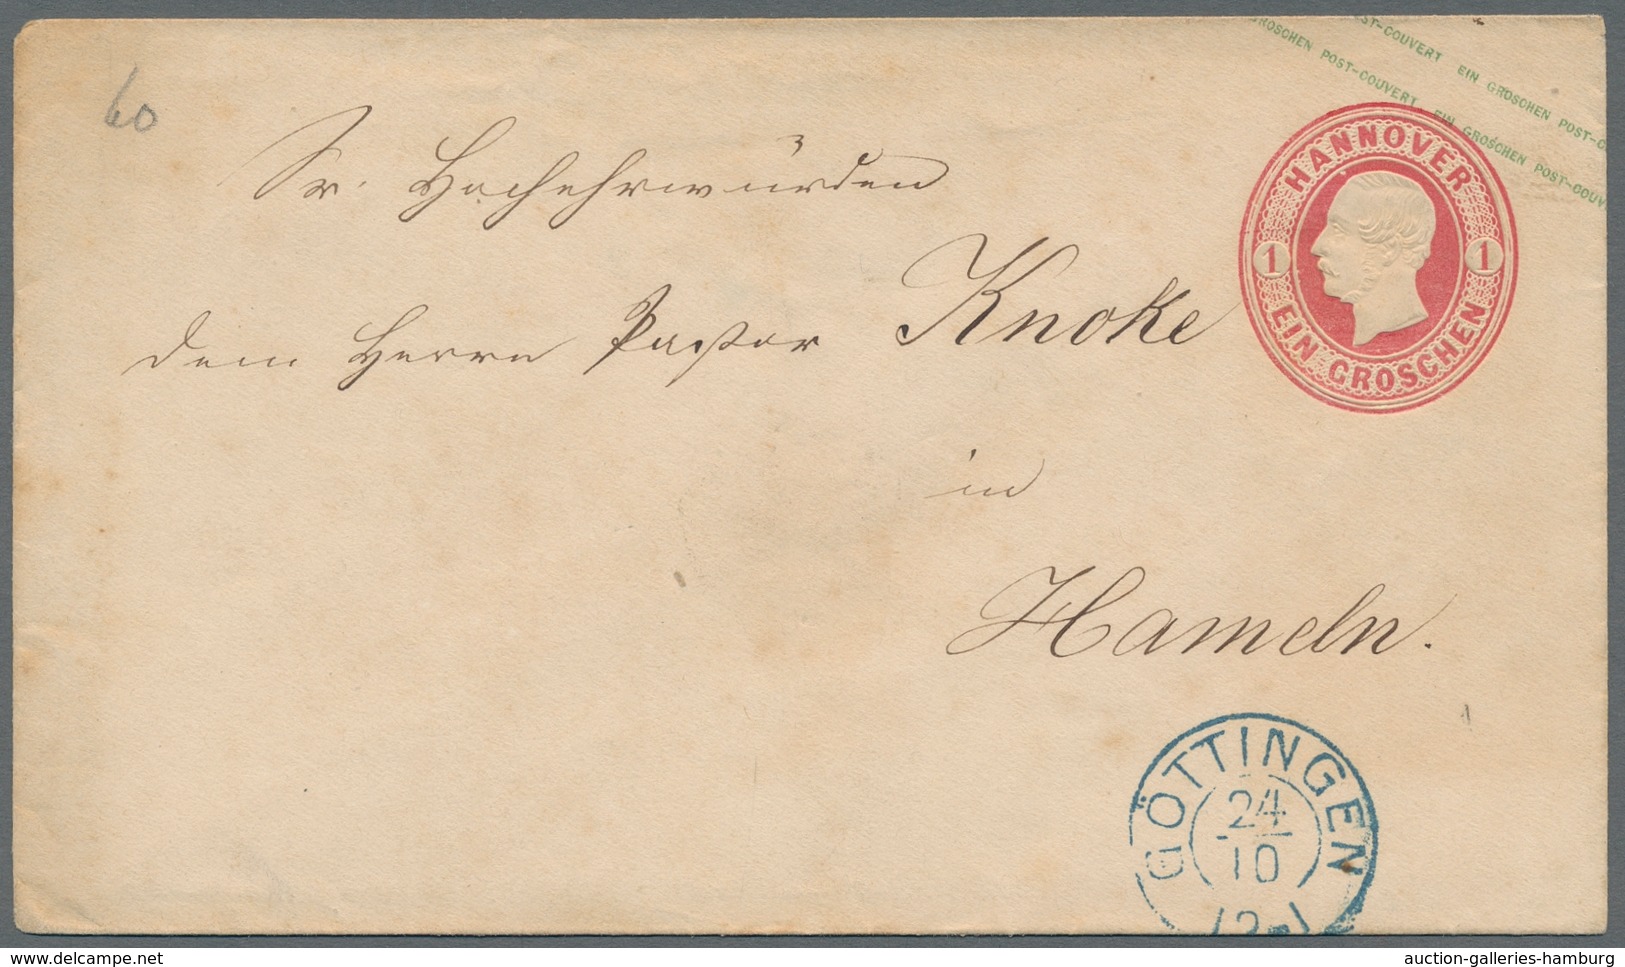 60
ST-COUVERT EIN GROSCHEN POST-C
GROSCHEN POST-COUVERT EIN GROSCHEN POST-COUV
HANNOVER
1 1
EIN GROSCHEN
Sr. Hochehrwürden
dem Herrn Pastor Knoke
in
Hameln.
GÖTTINGEN
24
10
delcampe.net
auction-galleries-hamburg